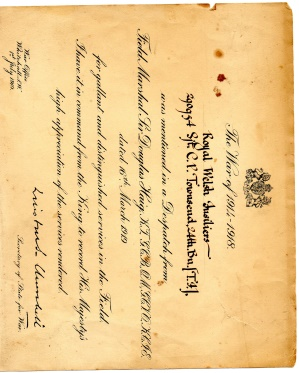 The War of 1914-1918.
Royal Welsh Fusiliers
290954 Sjt. C. V. Townsend, 24th Bn. (T.F.)
was mentioned in a Despatch from
Field Marshal Sir Douglas Haig, K.T., G.C.B., G.C.V.O., K.C.I.E.
dated 16th March 1919
for gallant and distinguished services in the Field.
I have it in command from the King to record His Majesty's
high appreciation of the services rendered.
Winston S. Churchill
Secretary of State for War.
War Office
Whitehall, S.W.
1st July 1919.